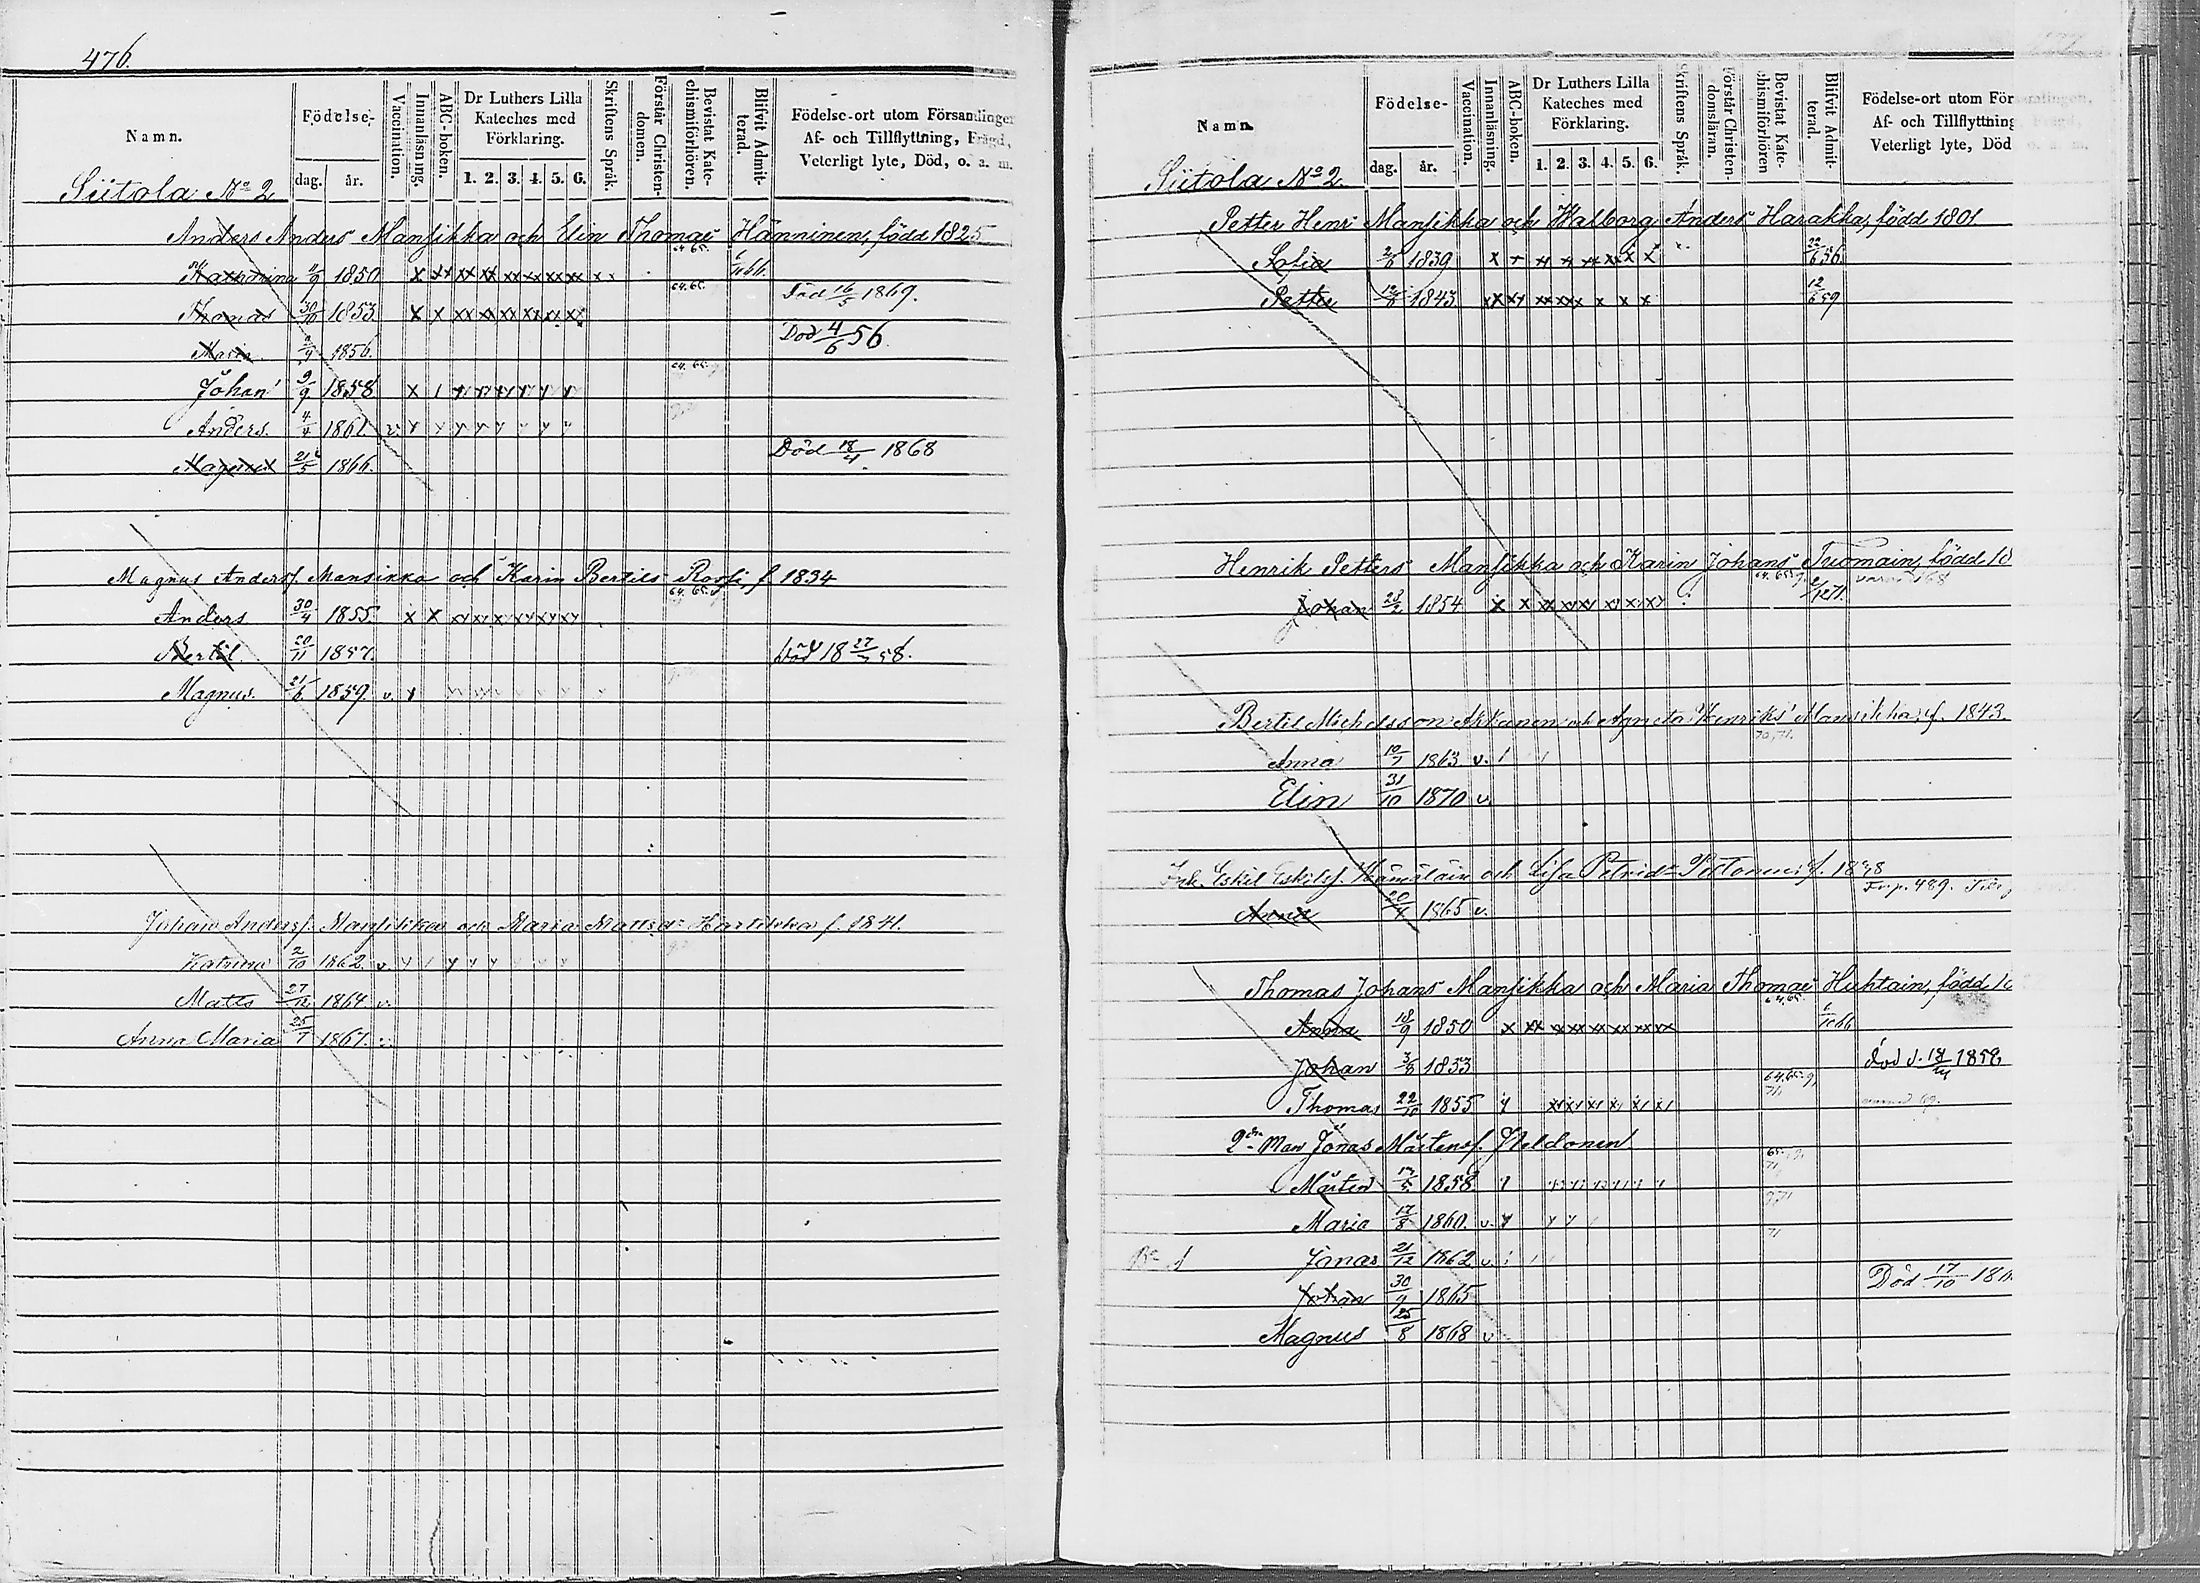 476.
Namn.
Födelse-
dag. år.
Vaccination.
Innanläsning.
ABC-boken.
Dr Luthers Lilla Kateches med Förklaring.
1. 2. 3. 4. 5. 6.
Skriftens Språk.
Förstår Christen-domen.
Bevistat Kate-chismiförhören.
Blifvit Admit-terad.
Födelse-ort utom Församlingen
Af- och Tillflyttning, Frägd,
Veterligt lyte, Död, o. a. m.
Siitola No 2
Anders Anders Mansikka och Elin Thomae Hänninen, född 1825
Katharina 1850 x xx xx xx xx xx xx xx x x 64.65. 1/11 66.
Thomas 30/10 1853 x x xx xx xx xx xx xx 64.65. Död 16/5 1869.
Maria 1856. Död 4/6 56.
Johan 9/9 1858 x 64.65.
Anders. 4/4 1861 v.
Magnus 21/5 1866. Död 18/4 1868
Magnus Andersf. Mansikka och Karin Bertils Rossi, f. 1834
Anders 30/4 1855. x x 64.65.
Bertil 20/11 1857. Död 18 27/7 58.
Magnus. 21/6 1859. v.
Johan Andersf. Mansikka och Maria Mattsd:r Hartikka f. 1841.
Katrina 2/10 1862. v.
Matts 27/12 1864 v.
Anna Maria 25/7 1867. v.
Namn.
Födelse-
dag. år.
Vaccination.
Innanläsning.
ABC-boken.
Dr Luthers Lilla Kateches med Förklaring.
1. 2. 3. 4. 5. 6.
Skriftens Språk.
Förstår Christen-domsläran.
Bevistat Kate-chismiförhören
Blifvit Admit-terad.
Födelse-ort utom Församlingen,
Af- och Tillflyttning, Frägd,
Veterligt lyte, Död, o. a. m.
Siitola No 2.
Petter Henr Mansikka och Walborg Anders Harakka, född 1801
Sofia 1839 22/6 56
Petter 12/8 1843 12/6 59
Henrik Petters Mansikka och Karin Johans Tuomain, född 18
Johan 28/2 1854 64.65.
Bertil Michelsson Akkanen och Agneta Henriks Mansikka, f. 1843.
Anna 10/7 1863 v. 70,71.
Elin 31/10 1870 v.
Eskil Eskilsf. Hämäläin och Lisa Petrid:r Peltonen, f. 18
Anna 20/4 1865 v. 489.
Thomas Johans Mansikka och Maria Thomae Huhtain, född 18
Anna 18/9 1850 64.65. 1/11 66
Johan 3/8 1853 Död d. 18/4 1858
Thomas 22/10 1855 64.65.9, 71.
2:dra Man Jonas Mårtensf. Peldonen
Mårten 17/5 1858. 65. 71,
Maria 17/8 1860. v. 71
Jonas 21/12 1862 v. 71
Johan 30/9 1865 Död 17/10 18
Magnus 25/8 1868 v